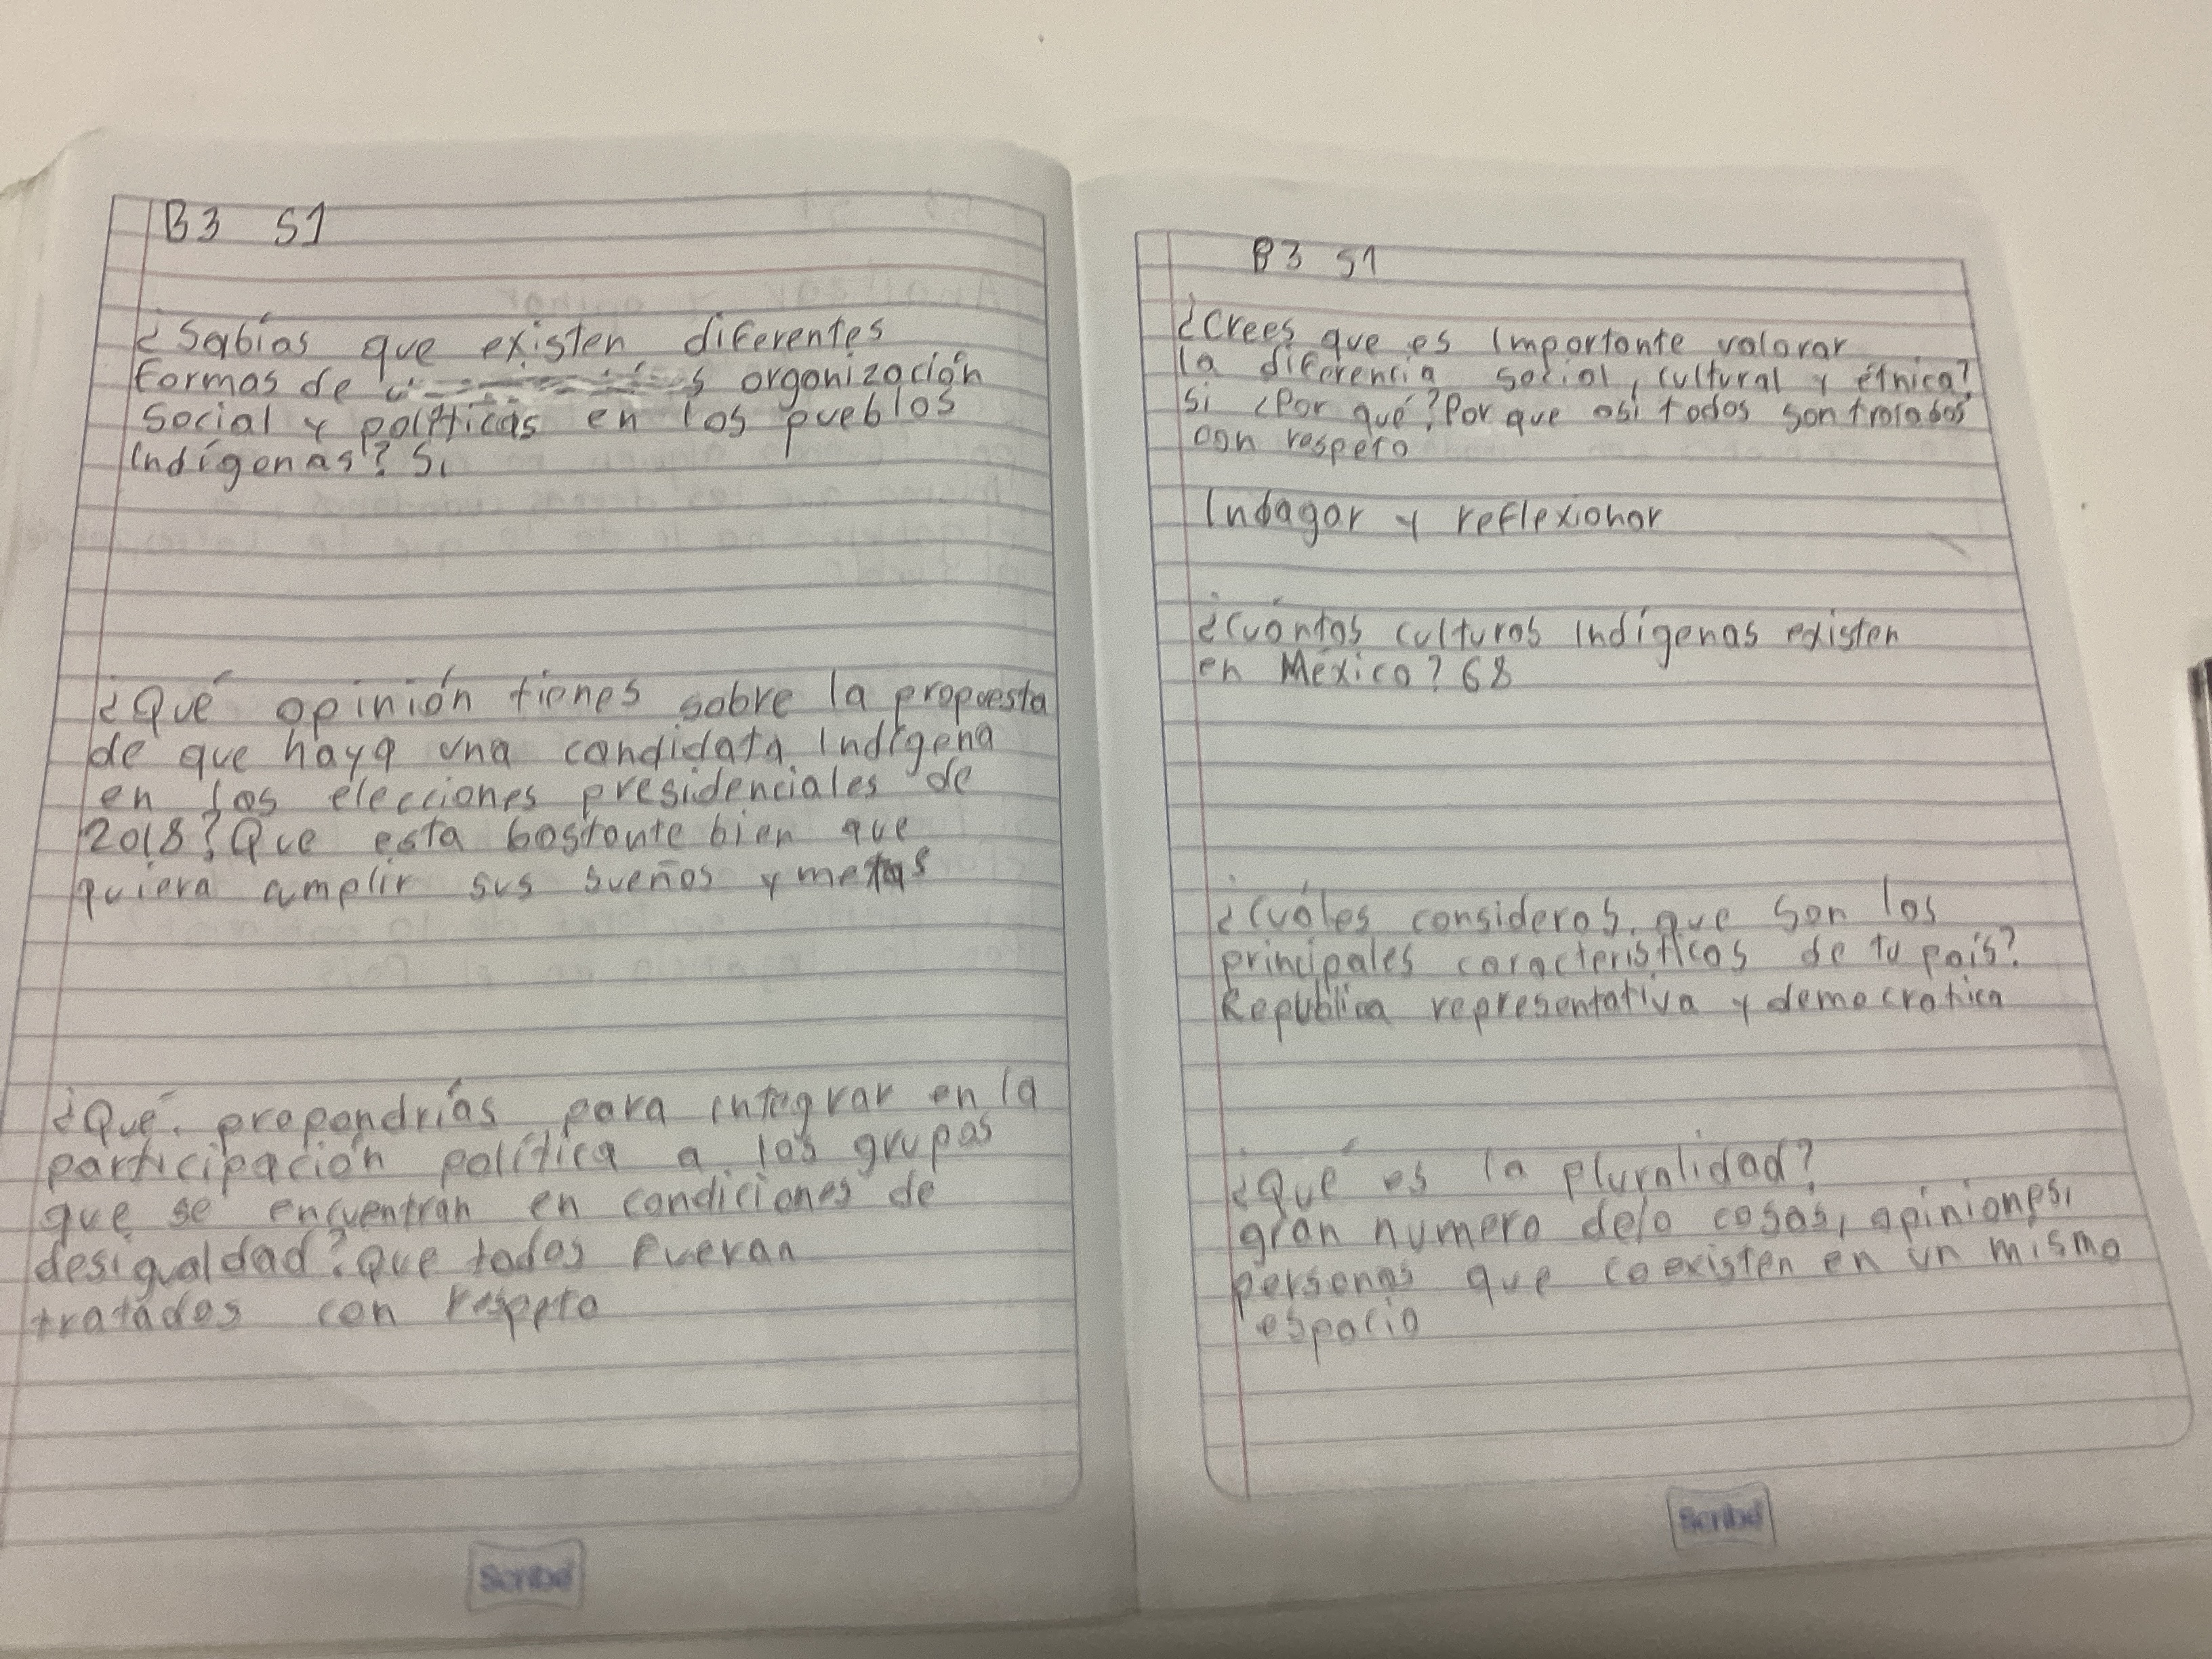 B3 S1
¿Sabías que existen diferentes
formas de organización
Social y políticas en los pueblos
Indígenas? Si
¿Qué opinión tienes sobre la propuesta
de que haya una candidata Indígena
en las elecciones presidenciales de
2018? Que esta bastante bien que
quiera cumplir sus sueños y metas
¿Qué propondrías para integrar en la
participación política a los grupos
que se encuentran en condiciones de
desigualdad? Que todos fueran
tratados con respeto
Scribe
B3 S1
¿Crees que es Importante valorar
la diferencia social, cultural y étnica?
Si ¿Por qué? Por que asi todos son tratados
con respeto
Indagar y reflexionar
¿Cuántas culturas Indígenas existen
en México? 68
¿Cuáles consideras que son las
principales características de tu país?
Republica representativa y democratica
¿Qué es la pluralidad?
gran numero de cosas, opiniones,
personas que coexisten en un mismo
espacio
Scribe